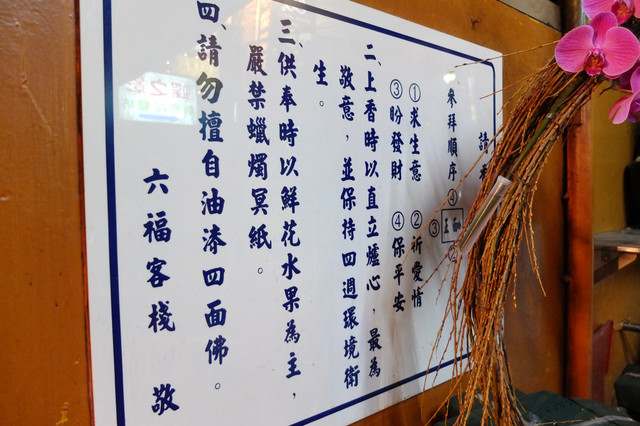 請
參拜順序④
王
③
②
①求生意 ②祈愛情
③盼發財 ④保平安
二、上香時以直立爐心，最為
敬意，並保持四週環境衛
生。
三、供奉時以鮮花水果為主，
嚴禁蠟燭冥紙。
四、請勿擅自油漆四面佛。
六福客棧 敬